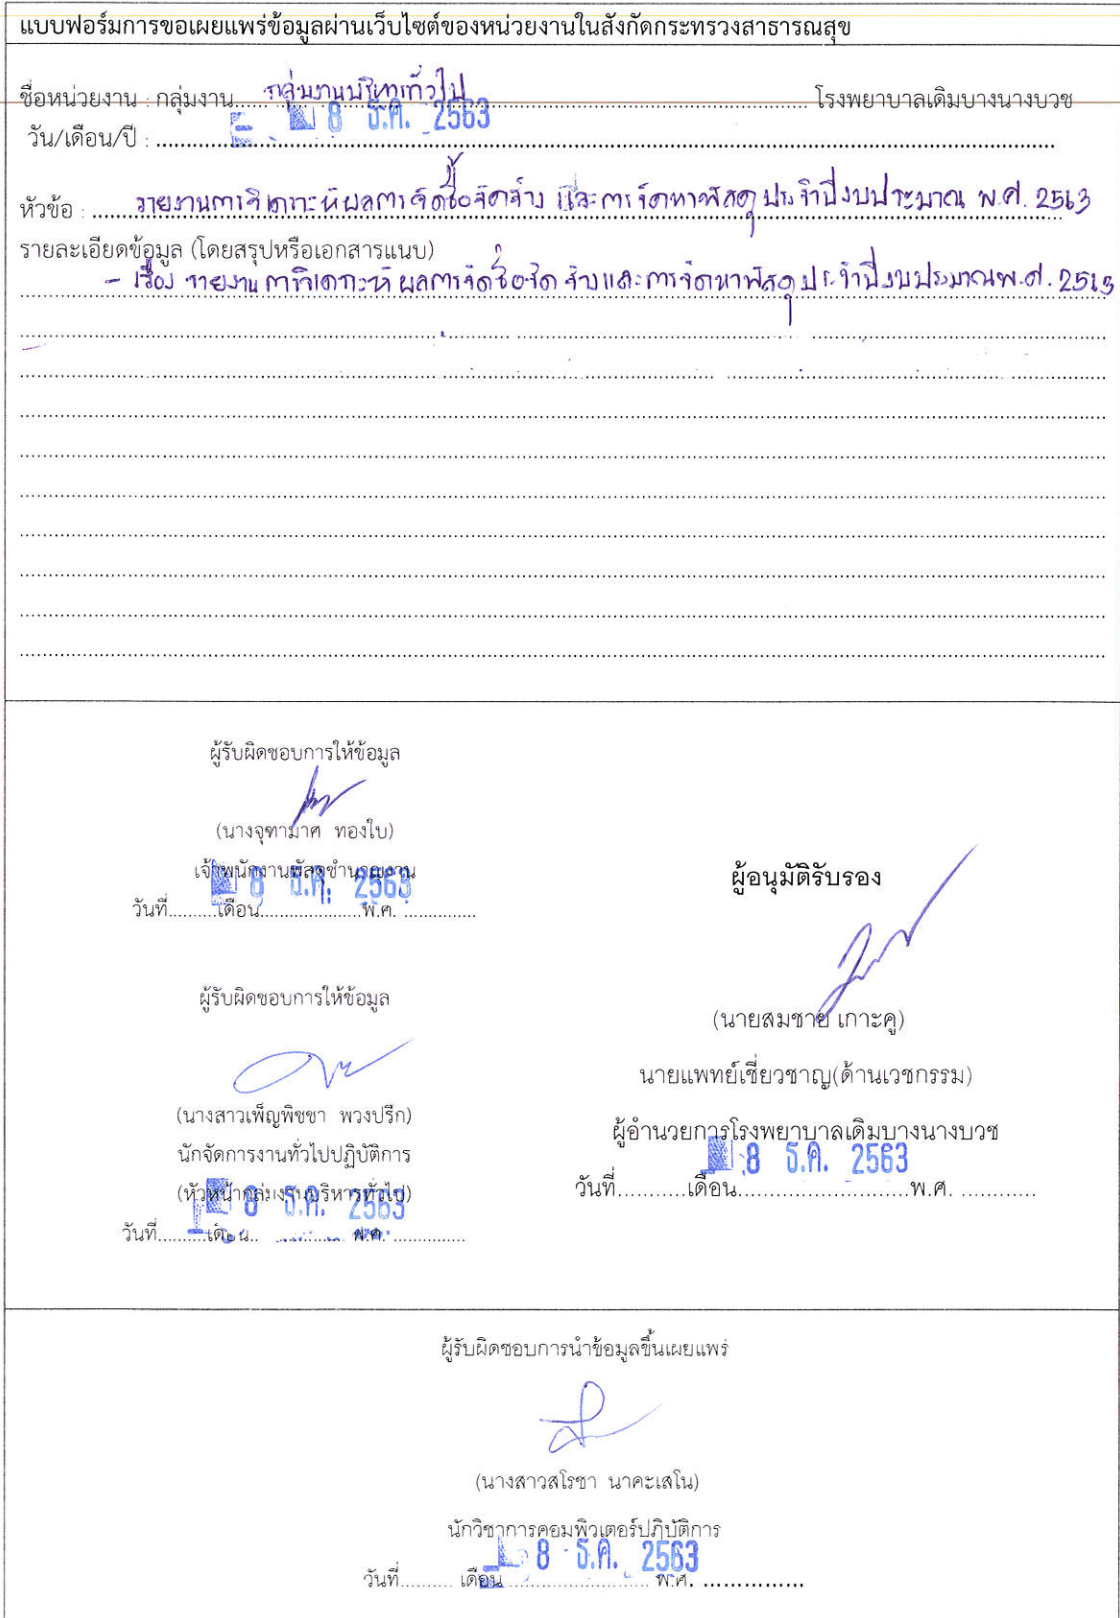 แบบฟอร์มการขอเผยแพร่ข้อมูลผ่านเว็บไซต์ของหน่วยงานในสังกัดกระทรวงสาธารณสุข
ชื่อหน่วยงาน : กลุ่มงาน.....กลุ่มงานบริหารทั่วไป..... โรงพยาบาลเดิมบางนางบวช
วัน/เดือน/ปี : ..... 8 ธ.ค. 2563 .....
หัวข้อ : .....รายงานการวิเคราะห์ผลการจัดซื้อจัดจ้าง และการจัดหาพัสดุ ประจำปีงบประมาณ พ.ศ. 2563
รายละเอียดข้อมูล (โดยสรุปหรือเอกสารแนบ)
- เรื่อง รายงานการวิเคราะห์ ผลการจัดซื้อจัดจ้างและการจัดหาพัสดุประจำปีงบประมาณพ.ศ. 2563
ผู้รับผิดชอบการให้ข้อมูล
(นางจุฑามาศ ทองใบ)
เจ้าพนักงานพัสดุชำนาญงาน
8 ธ.ค. 2563
วันที่..........เดือน.....................พ.ศ. ...............
ผู้รับผิดชอบการให้ข้อมูล
(นางสาวเพ็ญพิชชา พวงปรึก)
นักจัดการงานทั่วไปปฏิบัติการ
(หัวหน้ากลุ่มงานบริหารทั่วไป)
8 ธ.ค. 2563
วันที่..........เดือน.....................พ.ศ. ...............
ผู้อนุมัติรับรอง
(นายสมชาย เกาะคู)
นายแพทย์เชี่ยวชาญ(ด้านเวชกรรม)
ผู้อำนวยการโรงพยาบาลเดิมบางนางบวช
8 ธ.ค. 2563
วันที่...........เดือน...........................พ.ศ. ............
ผู้รับผิดชอบการนำข้อมูลขึ้นเผยแพร่
(นางสาวสโรชา นาคะเสโน)
นักวิชาการคอมพิวเตอร์ปฏิบัติการ
8 ธ.ค. 2563
วันที่.......... เดือน ........................... พ.ศ. ...............